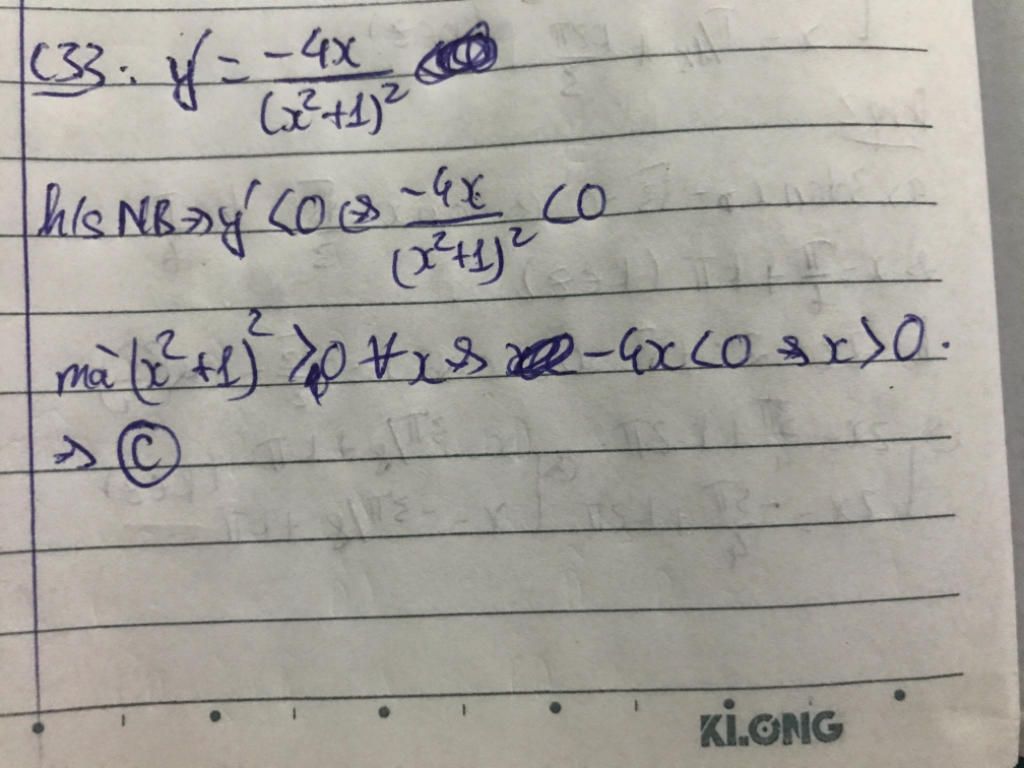 C33: y' = -4x/(x²+1)²
h/s NB ⇒ y' < 0 ⇔ -4x/(x²+1)² < 0
mà (x²+1)² > 0 ∀x ⇔ -4x < 0 ⇔ x > 0.
⇒ C
Ki.ONG